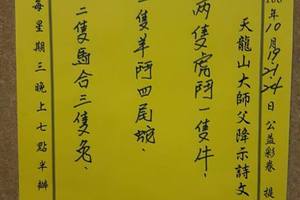 100年10月19.21.24日公益彩卷 提
天龍山大師父降示詩文
两隻虎鬥一隻牛、
二隻羊鬥四尾蛇、
二隻馬合三隻兔、
每星期三晚上七點半辦